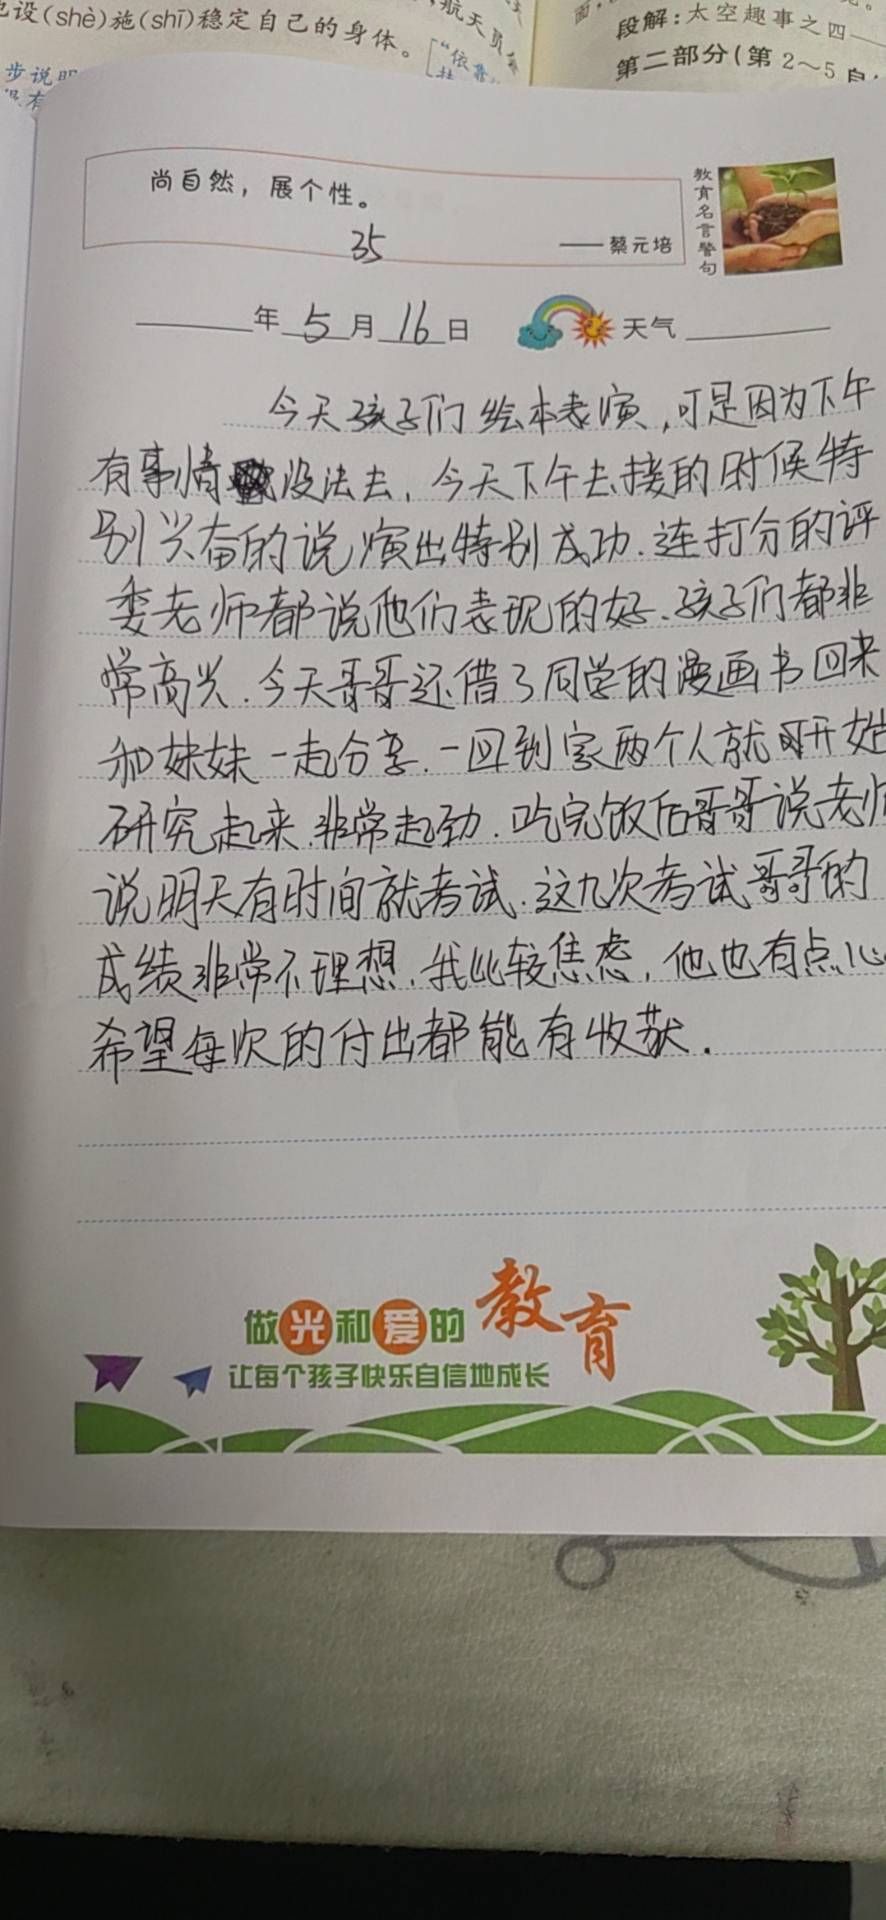 设(shè)施(shī)稳定自己的身体。
航天员
段解:太空趣事之四
步说明
"依靠
第二部分(第2~5自
尚自然，展个性。
35
——蔡元培
教育名言警句
年5月16日 天气
今天孩子们绘本表演,可是因为下午
有事情没法去,今天下午去接的时候特
别兴奋的说演出特别成功.连打分的评
委老师都说他们表现的好.孩子们都非
常高兴.今天哥哥还借了同学的漫画书回来
和妹妹一起分享.一回到家两个人就开始
研究起来.非常起劲.吃完饭后哥哥说老师
说明天有时间就考试.这几次考试哥哥的
成绩非常不理想.我比较焦虑,他也有点心
希望每次的付出都能有收获.
做光和爱的教育
让每个孩子快乐自信地成长